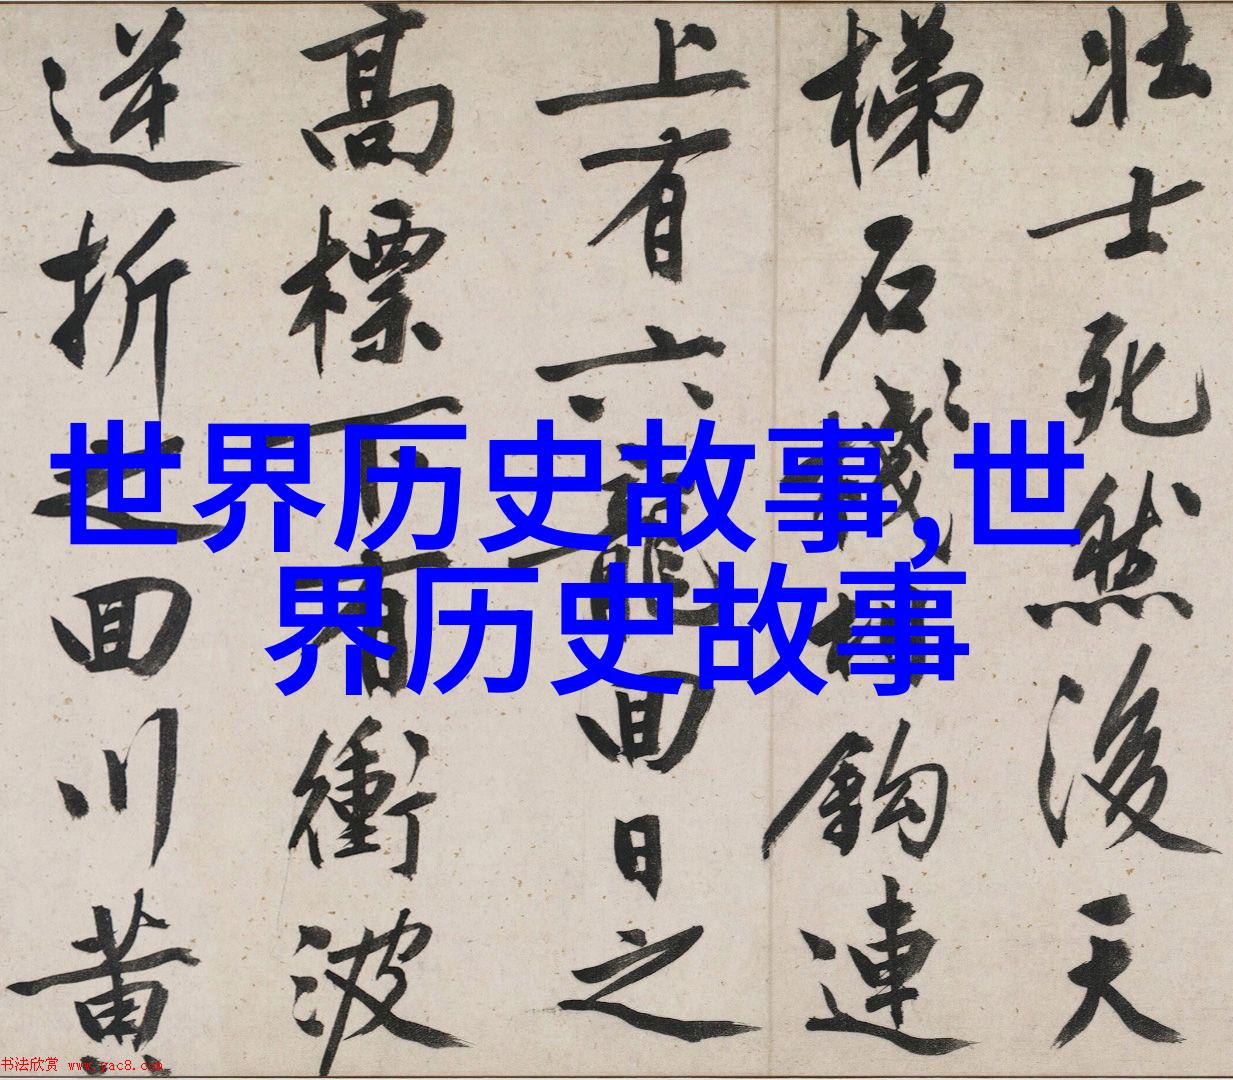 壯士死然後天
梯石棧相鈎連
上有六龍回日之
高標下有衝波
逆折之回川黃
世界历史故事,世
界历史故事
书法欣赏 www.yac8.com